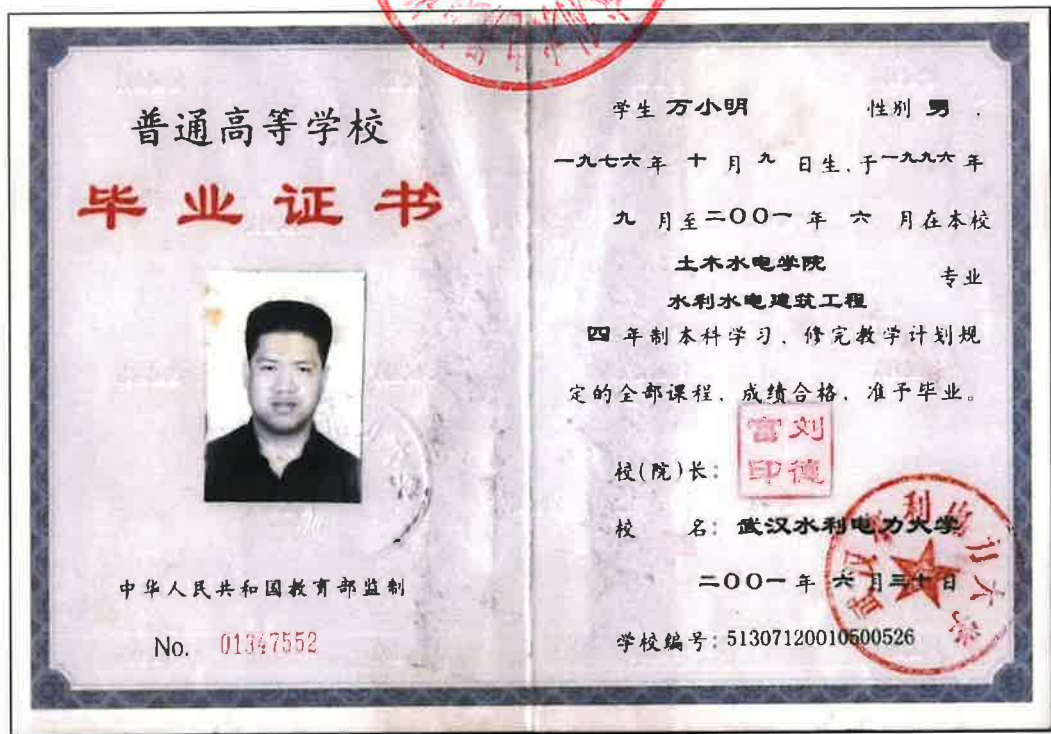 普通高等学校
毕业证书
中华人民共和国教育部监制
No. 01347552
学生 万小明 性别 男 .
一九七六年 十 月 九 日生, 于一九九六年
九 月至二〇〇一 年 六 月在本校
土木水电学院
水利水电建筑工程 专业
四 年制本科学习、修完教学计划规
定的全部课程, 成绩合格, 准予毕业。
校(院)长:
刘德富印
校 名: 武汉水利电力大学
二〇〇一 年 六 月三十日
学校编号: 51307120010500526